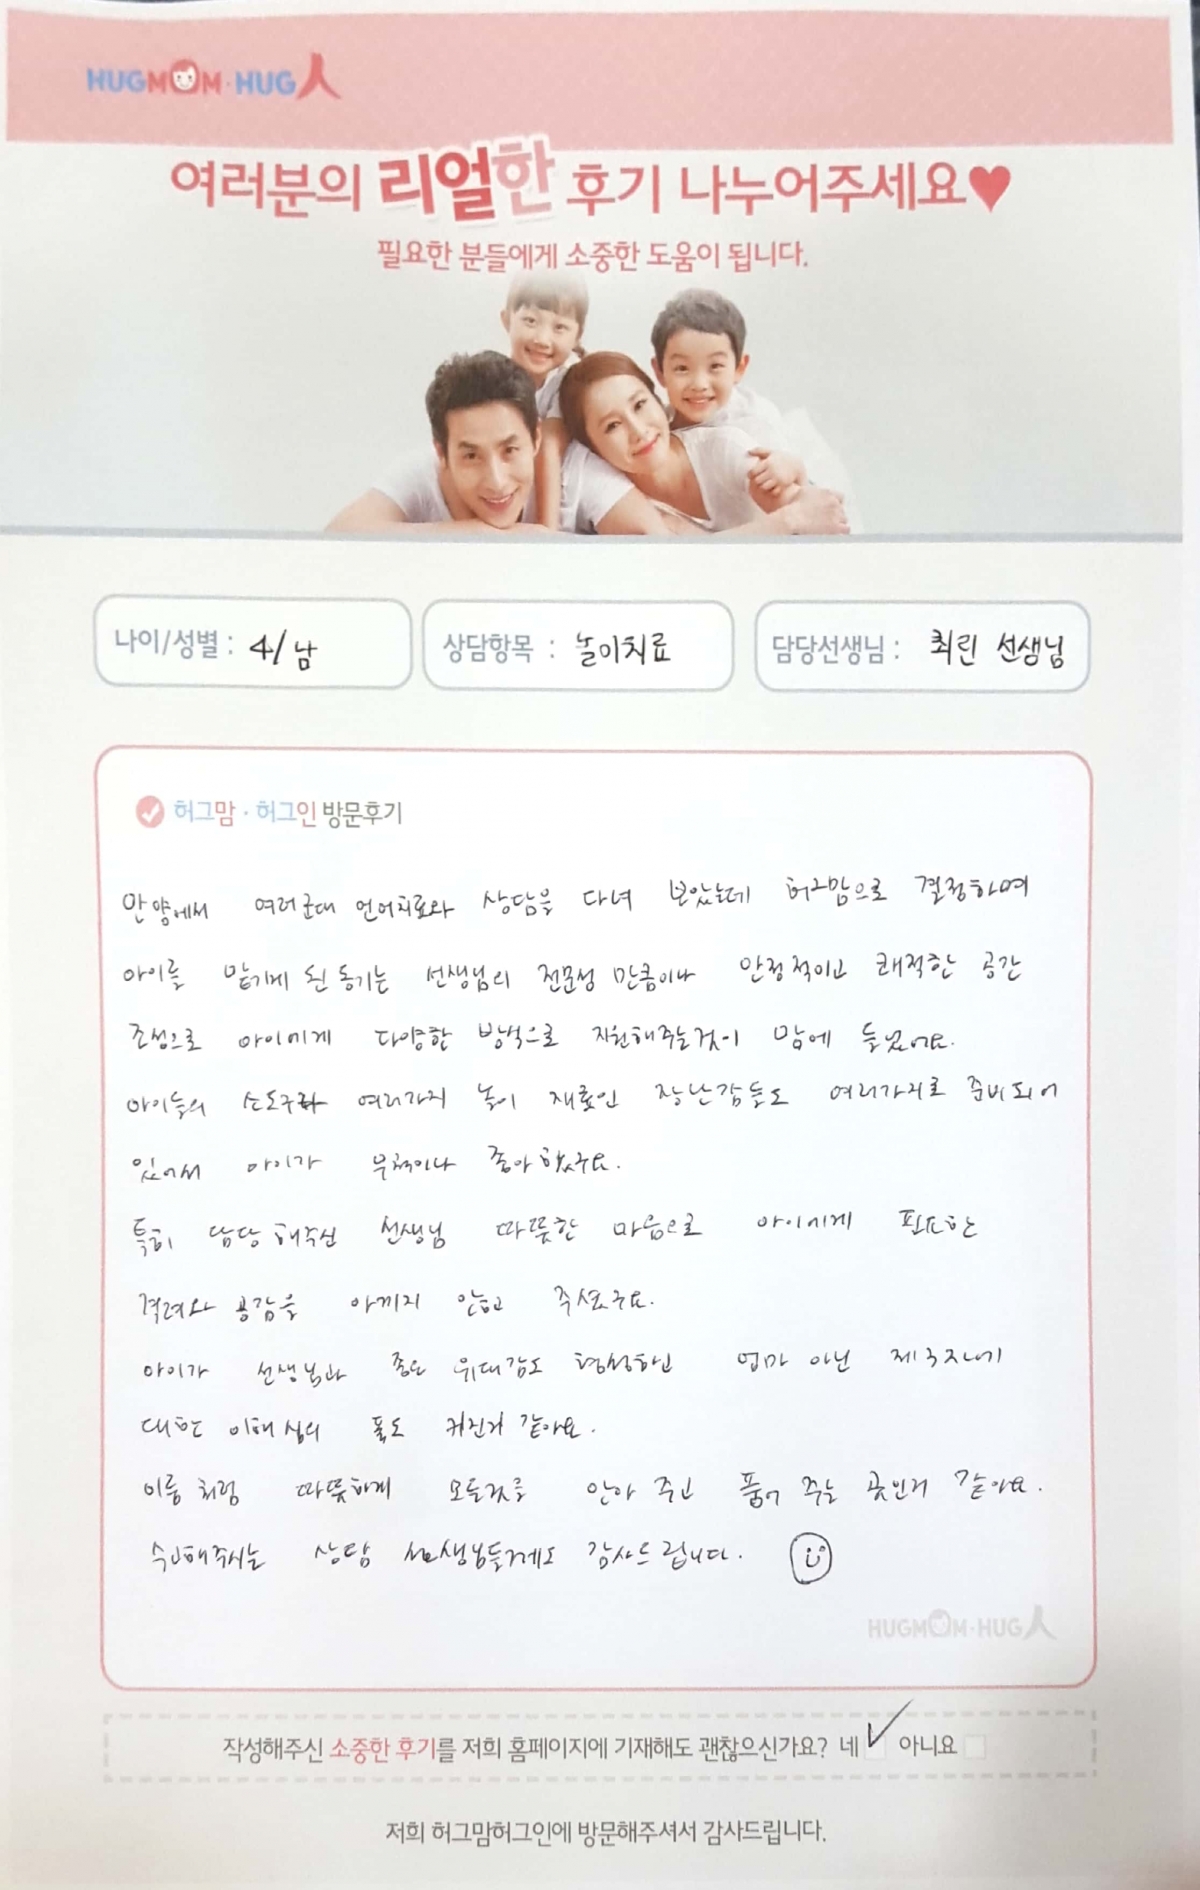 HUGMOM·HUG人
여러분의 리얼한 후기 나누어주세요♥
필요한 분들에게 소중한 도움이 됩니다.
나이/성별 : 4/남
상담항목 : 놀이치료
담당선생님 : 최린 선생님
허그맘·허그인 방문후기
안양에서 여러군대 언어치료와 상담을 다녀 보았는데 허그맘으로 결정하며
아이를 맡기게 된 동기는 선생님의 전문성 만큼이나 안정적이고 쾌적한 공간
조성으로 아이에게 다양한 방식으로 지원해주는것이 맘에 들었어요.
아이들의 소도구와 여러가지 놀이 재료인 장난감들도 여러가지로 준비되어
있어서 아이가 무척이나 좋아했구요.
특히 담당해주신 선생님 따뜻한 마음으로 아이에게 필요한
격려와 공감을 아끼지 않고 주셨구요.
아이가 선생님과 좋은 유대감도 형성하고 엄마 아닌 제3자에
대한 이해심의 폭도 커진거 같아요.
이름처럼 따뜻하게 모든것을 안아 주고 품어 주는 곳인거 같아요.
수고해주시는 상담 선생님들께도 감사드립니다.
HUGMOM·HUG人
작성해주신 소중한 후기를 저희 홈페이지에 기재해도 괜찮으신가요? 네 ✓ 아니요
저희 허그맘허그인에 방문해주셔서 감사드립니다.